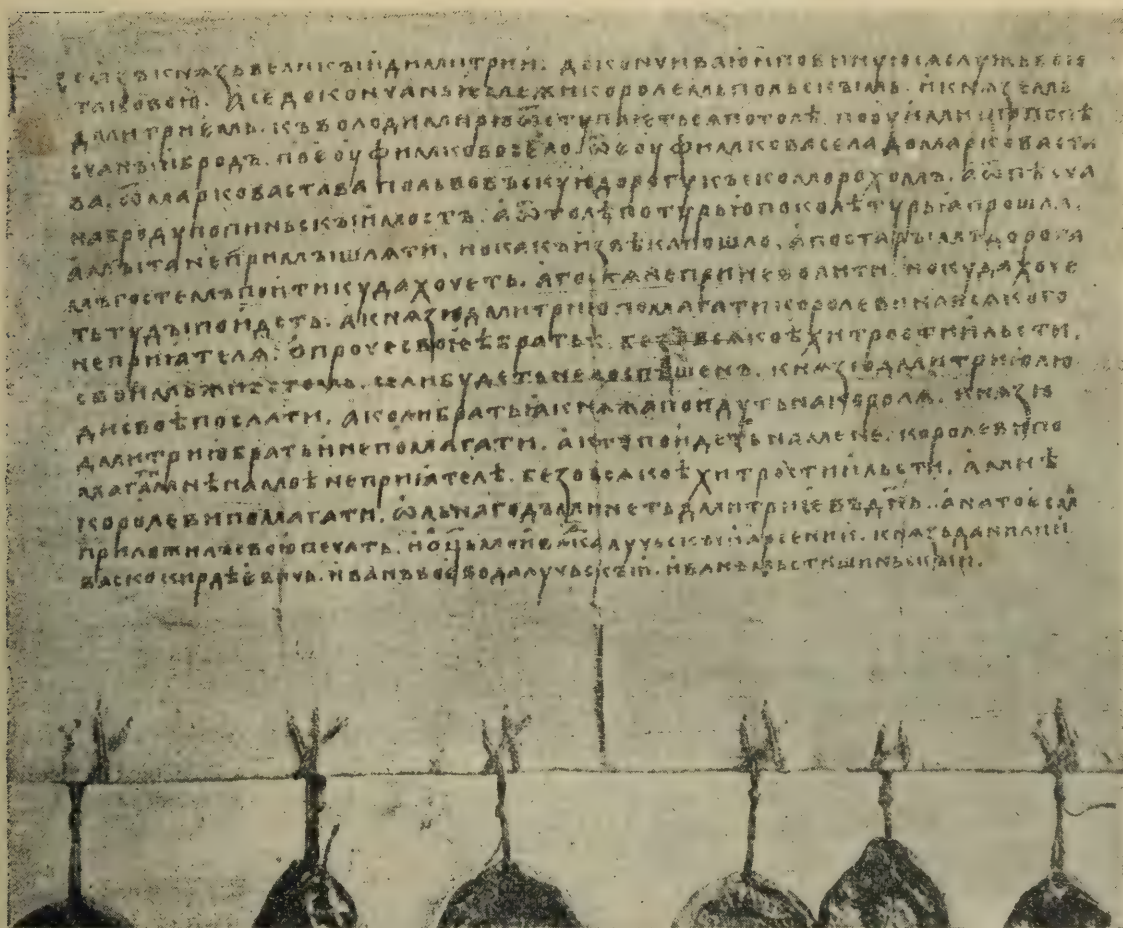 се ѧзъ кнѧзь великъıй димитрии. доконуиваю и повинуюсѧ службею
таковою. а се доконуаньє межи королемь польскъıмь. и кнѧземь
дмитриємь. къ володимирю ѿступитьсѧ потолѣ. по
бродъ. по єоуфимково село. ѿ єоуфимкова села до маркова ста
ва. ѿ маркова става по львовъскую дорогу къ скоморохомъ. а ѿ
на броду попиньскъıй мостъ. а ѿтолѣ по турью поколѣ турьıа прошла.
а мъıта не примъıшлѧти. но какъ изъ вѣка пошло. а по старъıмъ дорога
мъ гостемъ поити куда хочеть. а гостѧ не приневолити. но куда хоче
ть тудъı поидеть. а кнѧзю дмитрию помагати королеви на всѧкого
неприıателѧ. опроче своıєѣ братьѣ. безо всѧкоѣ хитрости и льсти.
своимь животомь. єсли будеть не доспѣшенъ. кнѧзю дмитрию лю
ди своѣ послати. а коли братьıа кнѧжа поидуть на королѧ. кнѧзю
дмитрию братьи не помагати. а кто поидеть на мене. королеви по
магати мнѣ на моѣ неприıателѣ. безо всѧкоѣ хитрости и льсти. а мнѣ
королеви помагати. ѿльна годъ минеть дмитриєвъ днь. а на то єсмь
приложилъ свою печать. и оць мои влдка лучьскъıи арсении. кнѧзь данилии
васко кирдѣєвичь. иванъ воєвода лучьскъıи. иванъ мьстишиньскъıи.